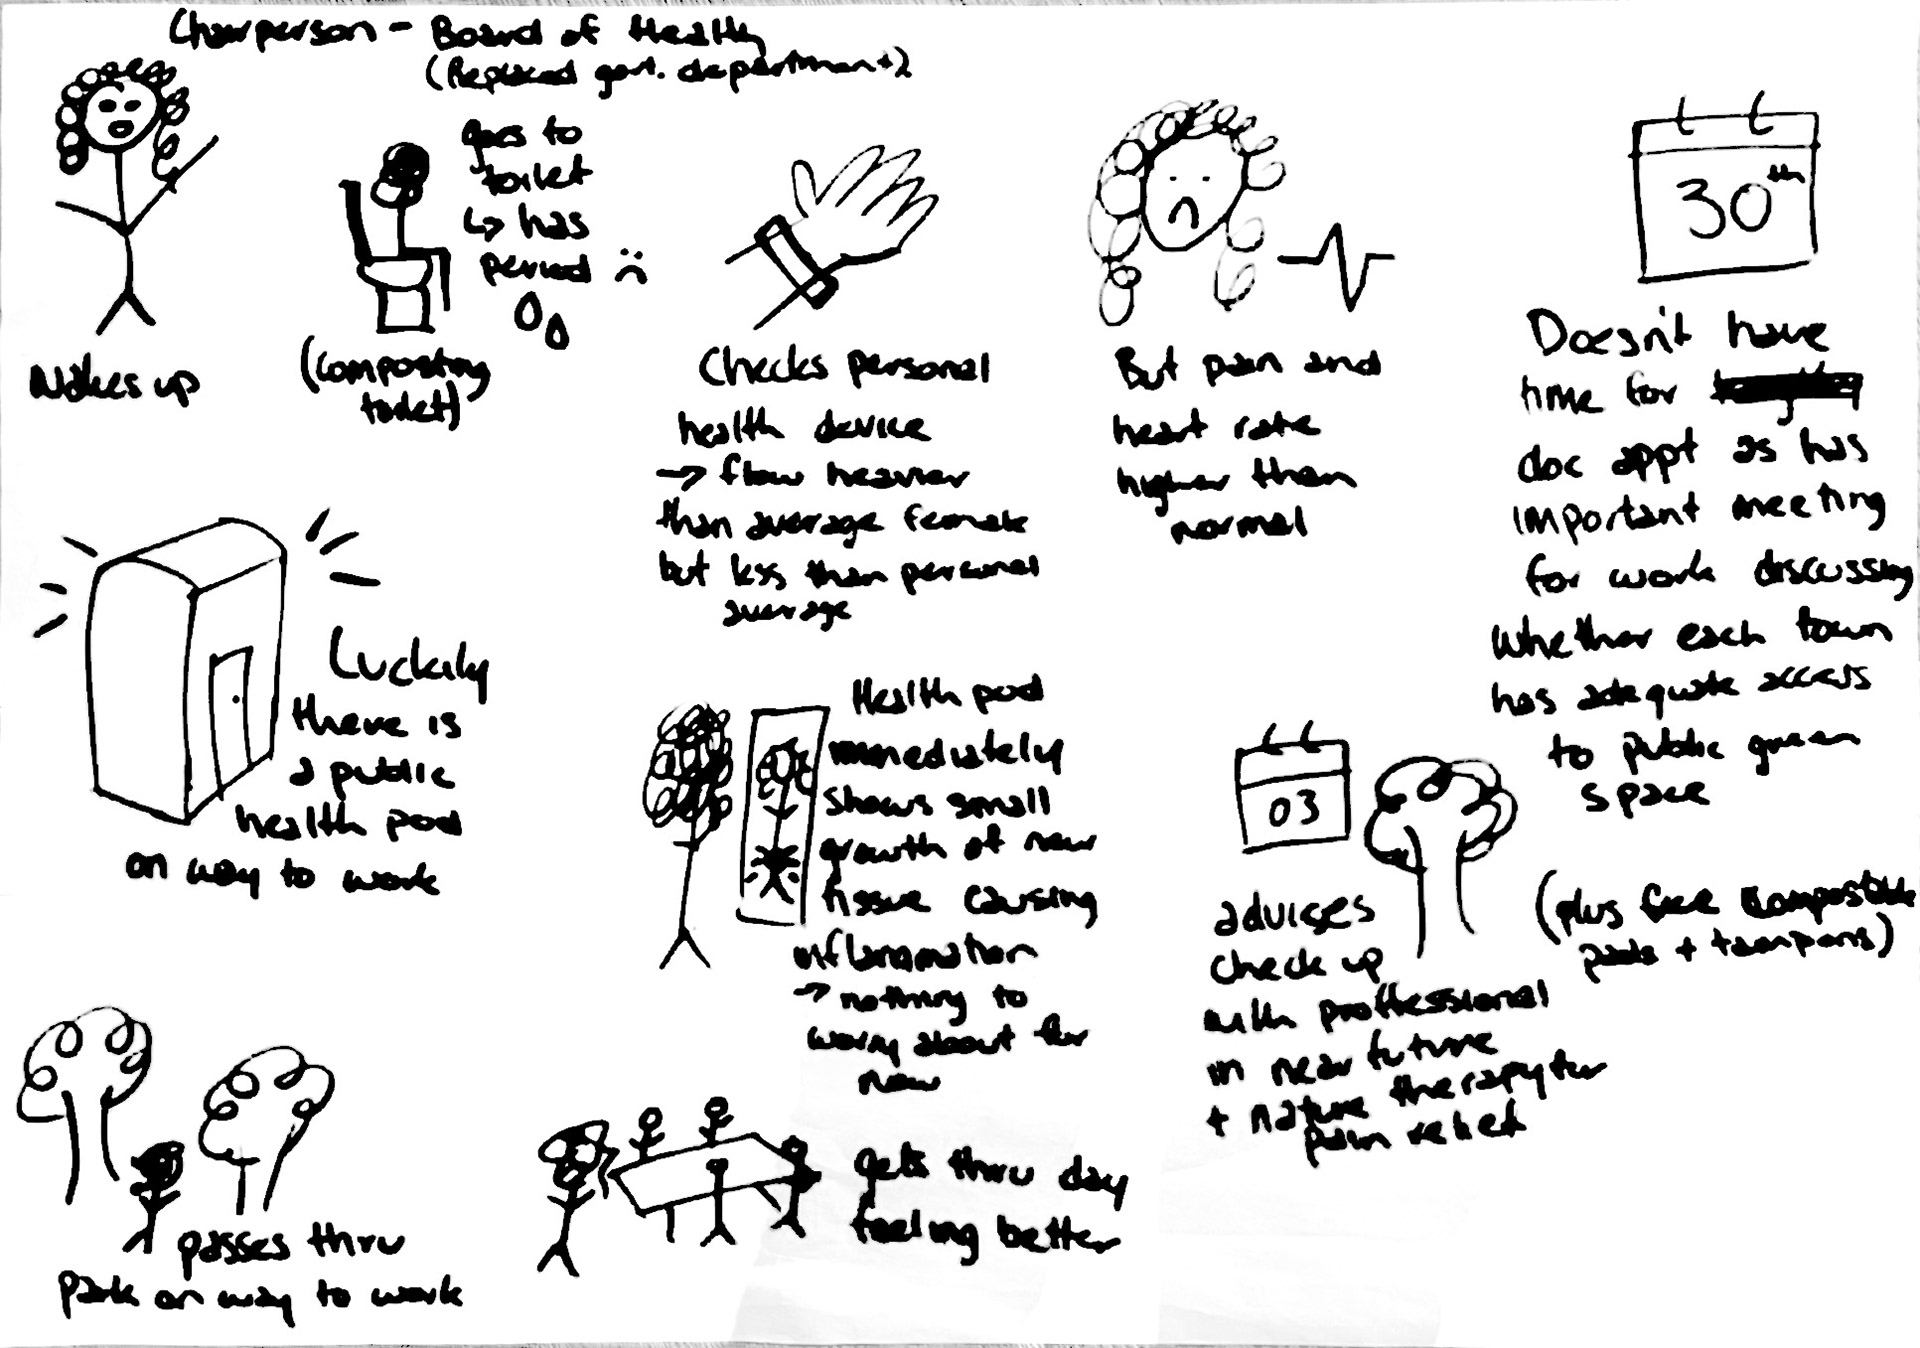 Chairperson - Board of Health
(Replaced govt. department)
Wakes up
goes to
toilet
↳ has
period :(
(composting
toilet)
Checks personal
health device
→ flow heavier
than average female
but less than personal
average
But pain and
heart rate
higher than
normal
30th
Doesn't have
time for
doc appt as has
important meeting
for work discussing
whether each town
has adequate access
to public green
space
Luckily
there is
a public
health pod
on way to work
Health pod
immediately
shows small
growth of new
tissue causing
inflammation
→ nothing to
worry about for
now
03
advises
check up
with proffessional
in near future
+ nature therapy for
pain relief
(plus free compostable
pads + tampons)
passes thru
park on way to work
gets thru day
feeling better